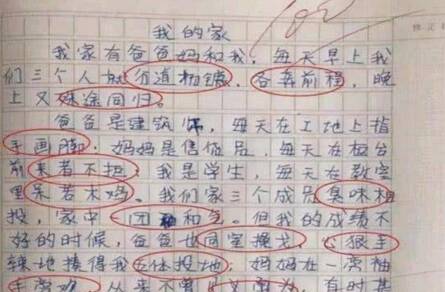 我的家
我家有爸爸妈和我，每天早上我
们三个人就分道扬镳，各奔前程，晚
上又殊途同归。
爸爸是建筑师，每天在工地上指
手画脚；妈妈是售货品，每天在柜台
前来者不拒；我是学生，每天在教室
里呆若木鸡。我们家三个成员臭味相
投，家中一团和气。但我的成绩不
好的时候，爸爸也同室操戈，心狠手
辣地揍得我五体投地，妈妈在一旁袖
手旁观，从来不